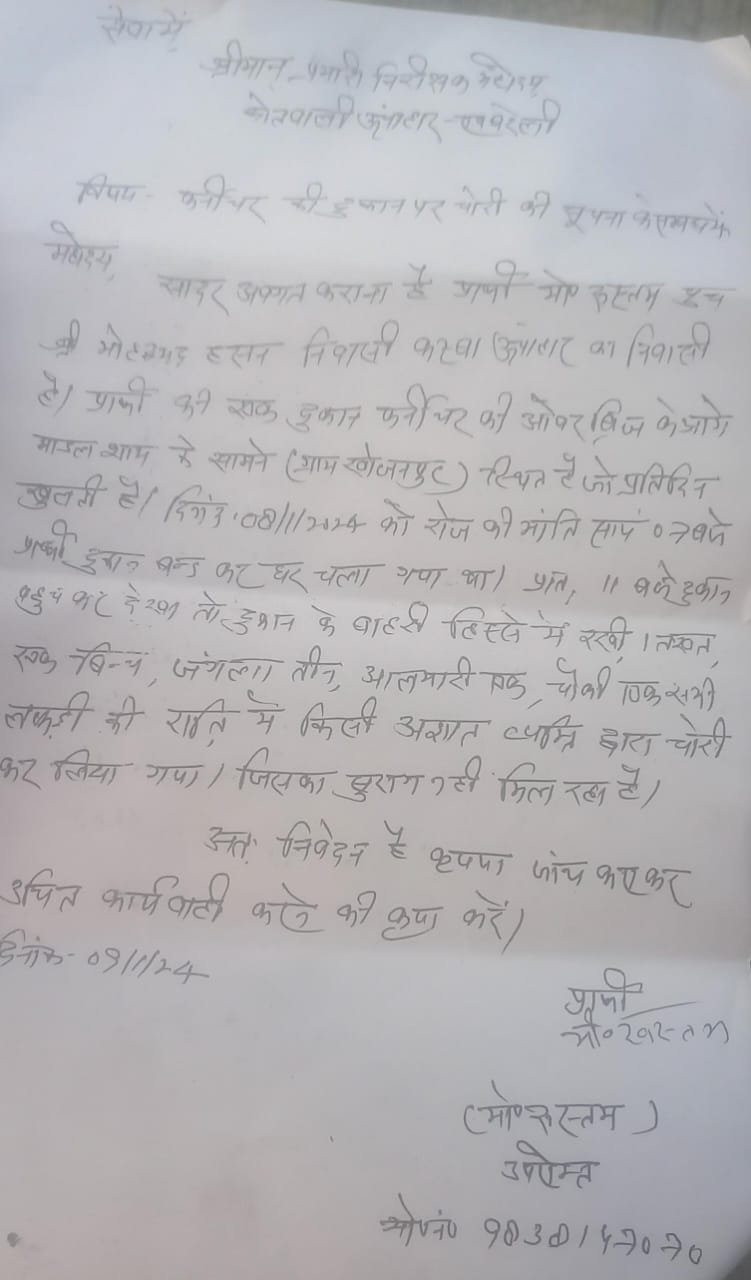 सेवा में
श्रीमान प्रभारी निरीक्षक महोदय
कोतवाली ऊंचाहार - रायबरेली
विषय - फर्नीचर की दुकान पर चोरी की सूचना के सम्बन्ध में
महोदय,
सादर अवगत कराना है प्रार्थी मो० रुस्तम पुत्र
श्री मोहम्मद हसन निवासी कस्बा ऊंचाहार का निवासी
है। प्रार्थी की एक दुकान फर्नीचर की ओवर ब्रिज के आगे
माडल शाप के सामने (ग्राम खोजनपुर) स्थित है जो प्रतिदिन
खुलती है। दिनांक 08/1/2024 को रोज की भांति सायं 07 बजे
प्रार्थी दुकान बन्द कर घर चला गया था। प्रातः 11 बजे दुकान
पहुंच कर देखा तो दुकान के बाहरी हिस्से में रखी 1 तख्त,
एक बेन्च, जंगला तीन, आलमारी एक, चौकी एक सभी
लकड़ी की रात्रि में किसी अज्ञात व्यक्ति द्वारा चोरी
कर लिया गया। जिसका सुराग नही मिल रहा है।
अतः निवेदन है कृपया जांच कराकर
उचित कार्यवाही करने की कृपा करें।
दिनांक - 09/1/24
प्रार्थी
मो० रुस्तम
(मो० रुस्तम)
उपरोक्त
मो०नं०